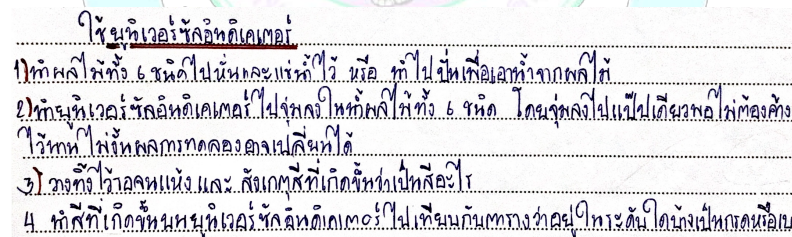 ใช้ยูนิเวอร์ซัลอินดิเคเตอร์
1) นำผลไม้ทั้ง 6 ชนิดไปหั่นและแช่น้ำไว้ หรือ นำไปปั่นเพื่อเอาน้ำจากผลไม้
2) นำยูนิเวอร์ซัลอินดิเคเตอร์ไปจุ่มลงในน้ำผลไม้ทั้ง 6 ชนิด โดยจุ่มลงไปแป๊ปเดียวพอไม่ต้องค้าง
ไว้นาน ไม่งั้นผลการทดลองอาจเปลี่ยนได้
3) วางทิ้งไว้รอจนแห้ง และ สังเกตุสีที่เกิดขึ้นว่าเป็นสีอะไร
4. นำสีที่เกิดขึ้นบนยูนิเวอร์ซัลอินดิเคเตอร์ไปเทียบกับตารางว่าอยู่ในระดับใดบ้างเป็นกรดหรือเบ